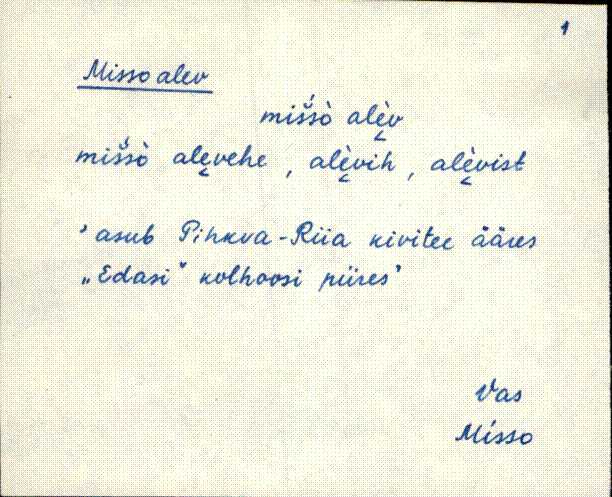 1
Misso alev
mišśò alèv
mišśò alevehe, alèvih, alèvist
' asub Pihkva-Riia kivitee ääres
„Edasi" kolhoosi piires'
Vas
Misso